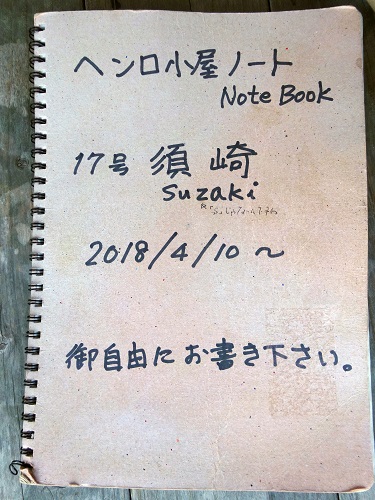 ヘンロ小屋ノート
Note Book
17号 須崎
Suzaki
2018/4/10～
御自由にお書き下さい。